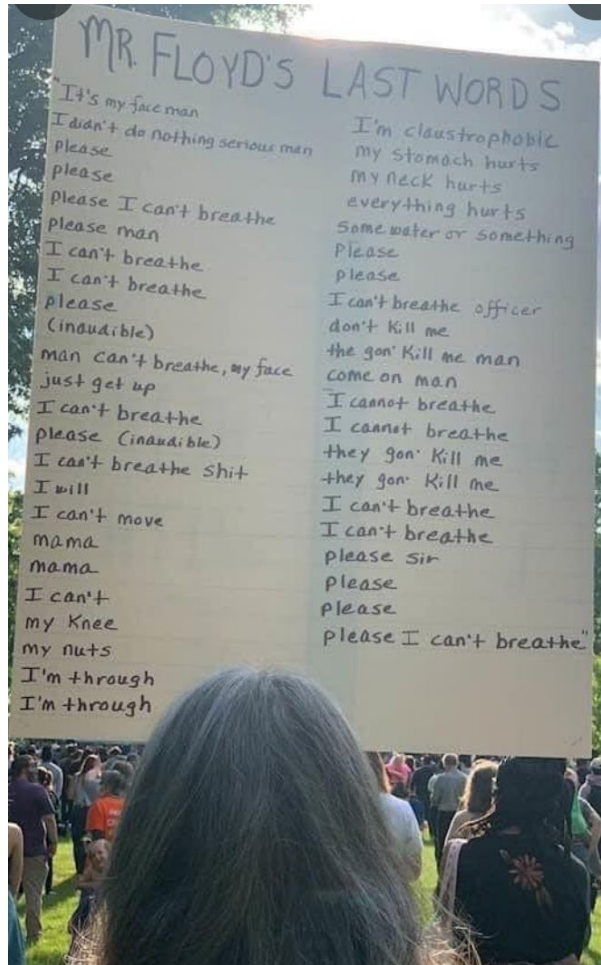 MR. FLOYD'S LAST WORDS
"It's my face man
I didn't do nothing serious man
please
please
Please I can't breathe
please man
I can't breathe
I can't breathe
please
(inaudible)
man can't breathe, my face
just get up
I can't breathe
please (inaudible)
I can't breathe shit
I will
I can't move
mama
mama
I can't
my Knee
my nuts
I'm through
I'm through
I'm claustrophobic
my stomach hurts
my neck hurts
everything hurts
some water or something
Please
please
I can't breathe officer
don't Kill me
the gon' Kill me man
come on man
I cannot breathe
I cannot breathe
they gon' Kill me
they gon' Kill me
I can't breathe
I can't breathe
please sir
please
please
please I can't breathe"